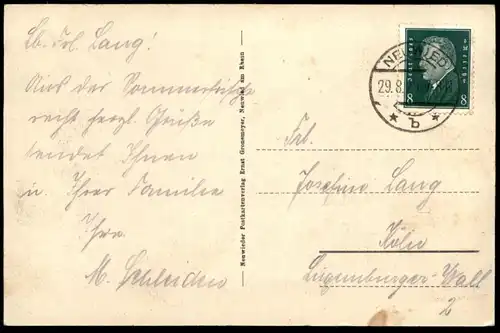 Lb. Frl. Lang!
Aus der Sommerfrische
recht herzl. Grüße
sendet Ihnen
u. Ihrer Familie
Ihr
M. Schleiden
Neuwieder Postkartenverlag Ernst Gronemeyer, Neuwied am Rhein
NEUWIED
29.8.
* b *
Deutsches Reich
8 8
Frl.
Josefine Lang
Köln
Luxemburger-Wall
2